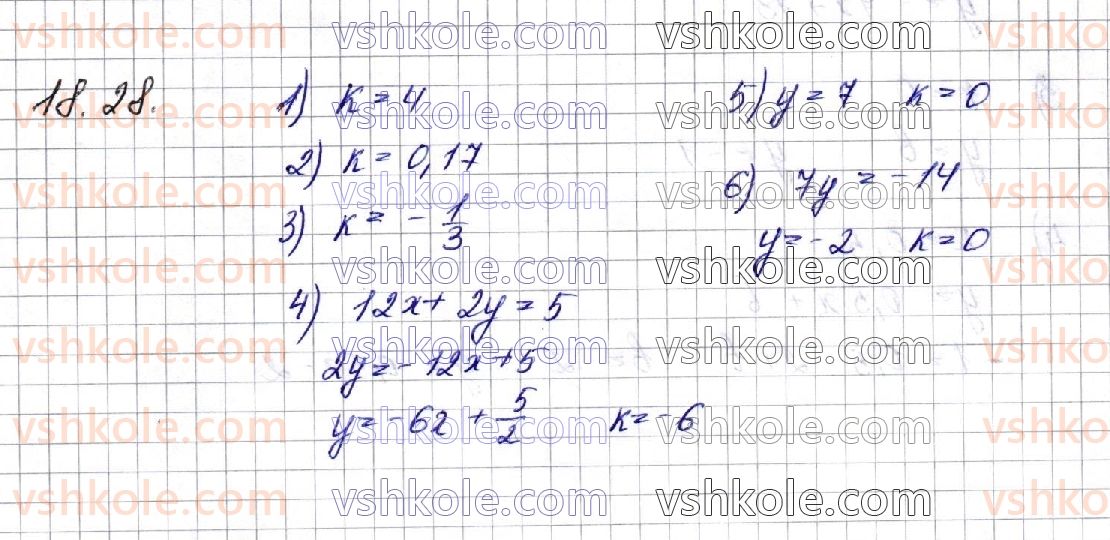 18.28.
1) k = 4
2) k = 0,17
3) k = - 1/3
4) 12x + 2y = 5
2y = -12x + 5
y = -6x + 5/2 k = -6
5) y = 7 k = 0
6) 7y = -14
y = -2 k = 0
vshkole.com vshkole.com vshkole.com
vshkole.com vshkole.com vshkole.com
vshkole.com vshkole.com vshkole.com
vshkole.com vshkole.com vshkole.com
vshkole.com vshkole.com vshkole.com
vshkole.com vshkole.com vshkole.com
vshkole.com vshkole.com vshkole.com